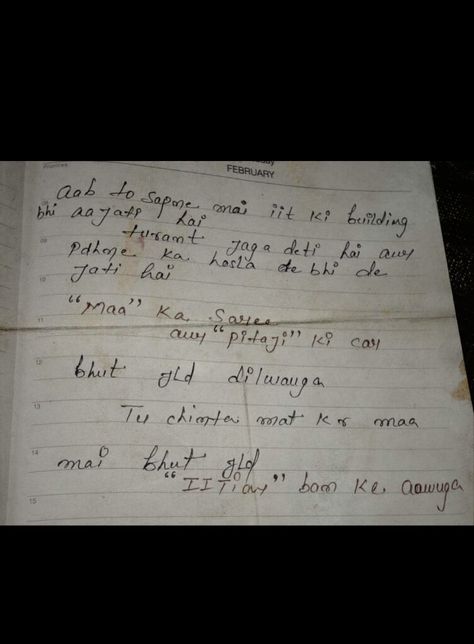 FEBRUARY
aab to sapne mai iit ki building
bhi aajati hai
turant jaga deti hai aur
Pdhne ka hosla de bhi de
jati hai
"Maa" Ka Saree
aur "pitaji" ki car
bhut jld dilwauga
Tu chinta mat kr maa
mai bhut jld
"IITian" ban ke aauuga
09
10
11
12
13
14
15